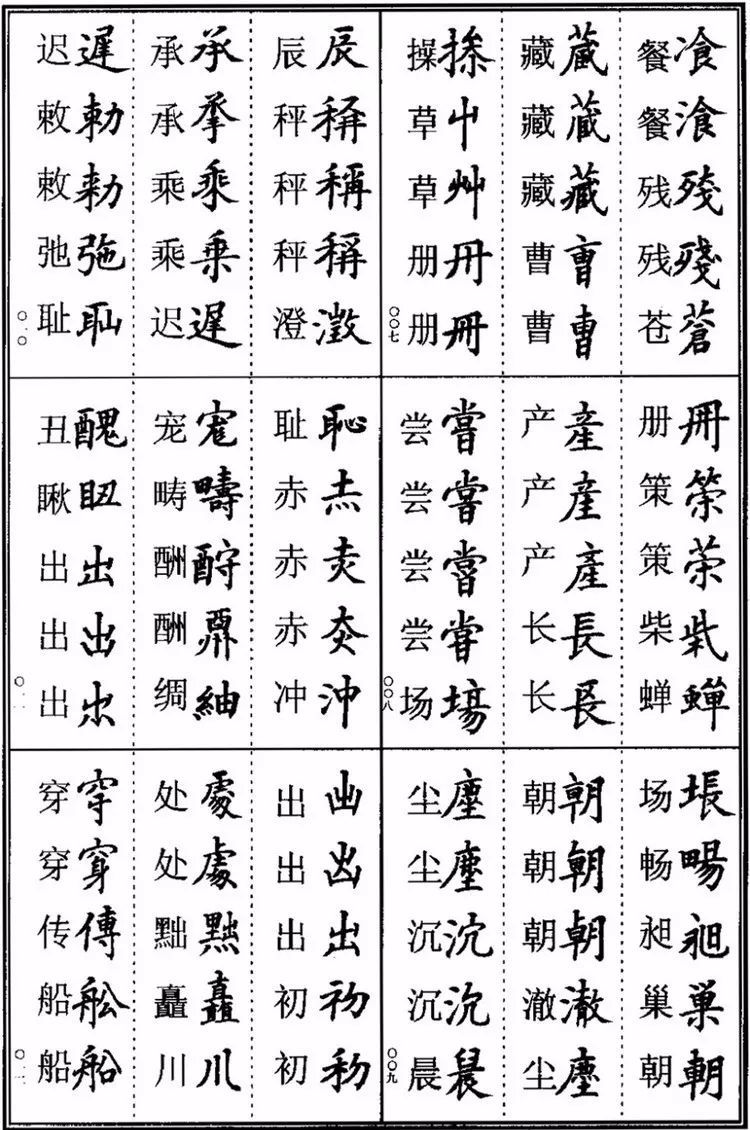 餐飡
餐湌
残殘
残殘
苍蒼
藏
藏
藏藏
曹
曹曺
操
草屮
草艸
册冊
册冊
〇〇七
册冊
策
策
柴
蝉蟬
产産
产産
产產
长長
长镸
尝嘗
尝嘗
尝嘗
尝甞
场場
〇〇八
场
畅暢
昶
巢巢
朝朝
朝朝
朝朝
朝朝
澈澈
尘塵
尘塵
尘塵
沉沈
沉沉
晨
〇〇九
辰辰
秤稱
秤稱
秤稱
澄澂
承承
承
乘乘
乘乗
迟遟
迟遲
敕勅
敕勑
弛弛
耻
〇一〇
耻恥
赤
赤
赤
冲沖
宠
畴疇
酬
酬
绸紬
丑醜
瞅
出出
出出
出
〇一一
出
出
出出
初初
初
处處
处處
黜黜
矗矗
川川
穿穿
穿
传傳
船舩
船船
〇一二